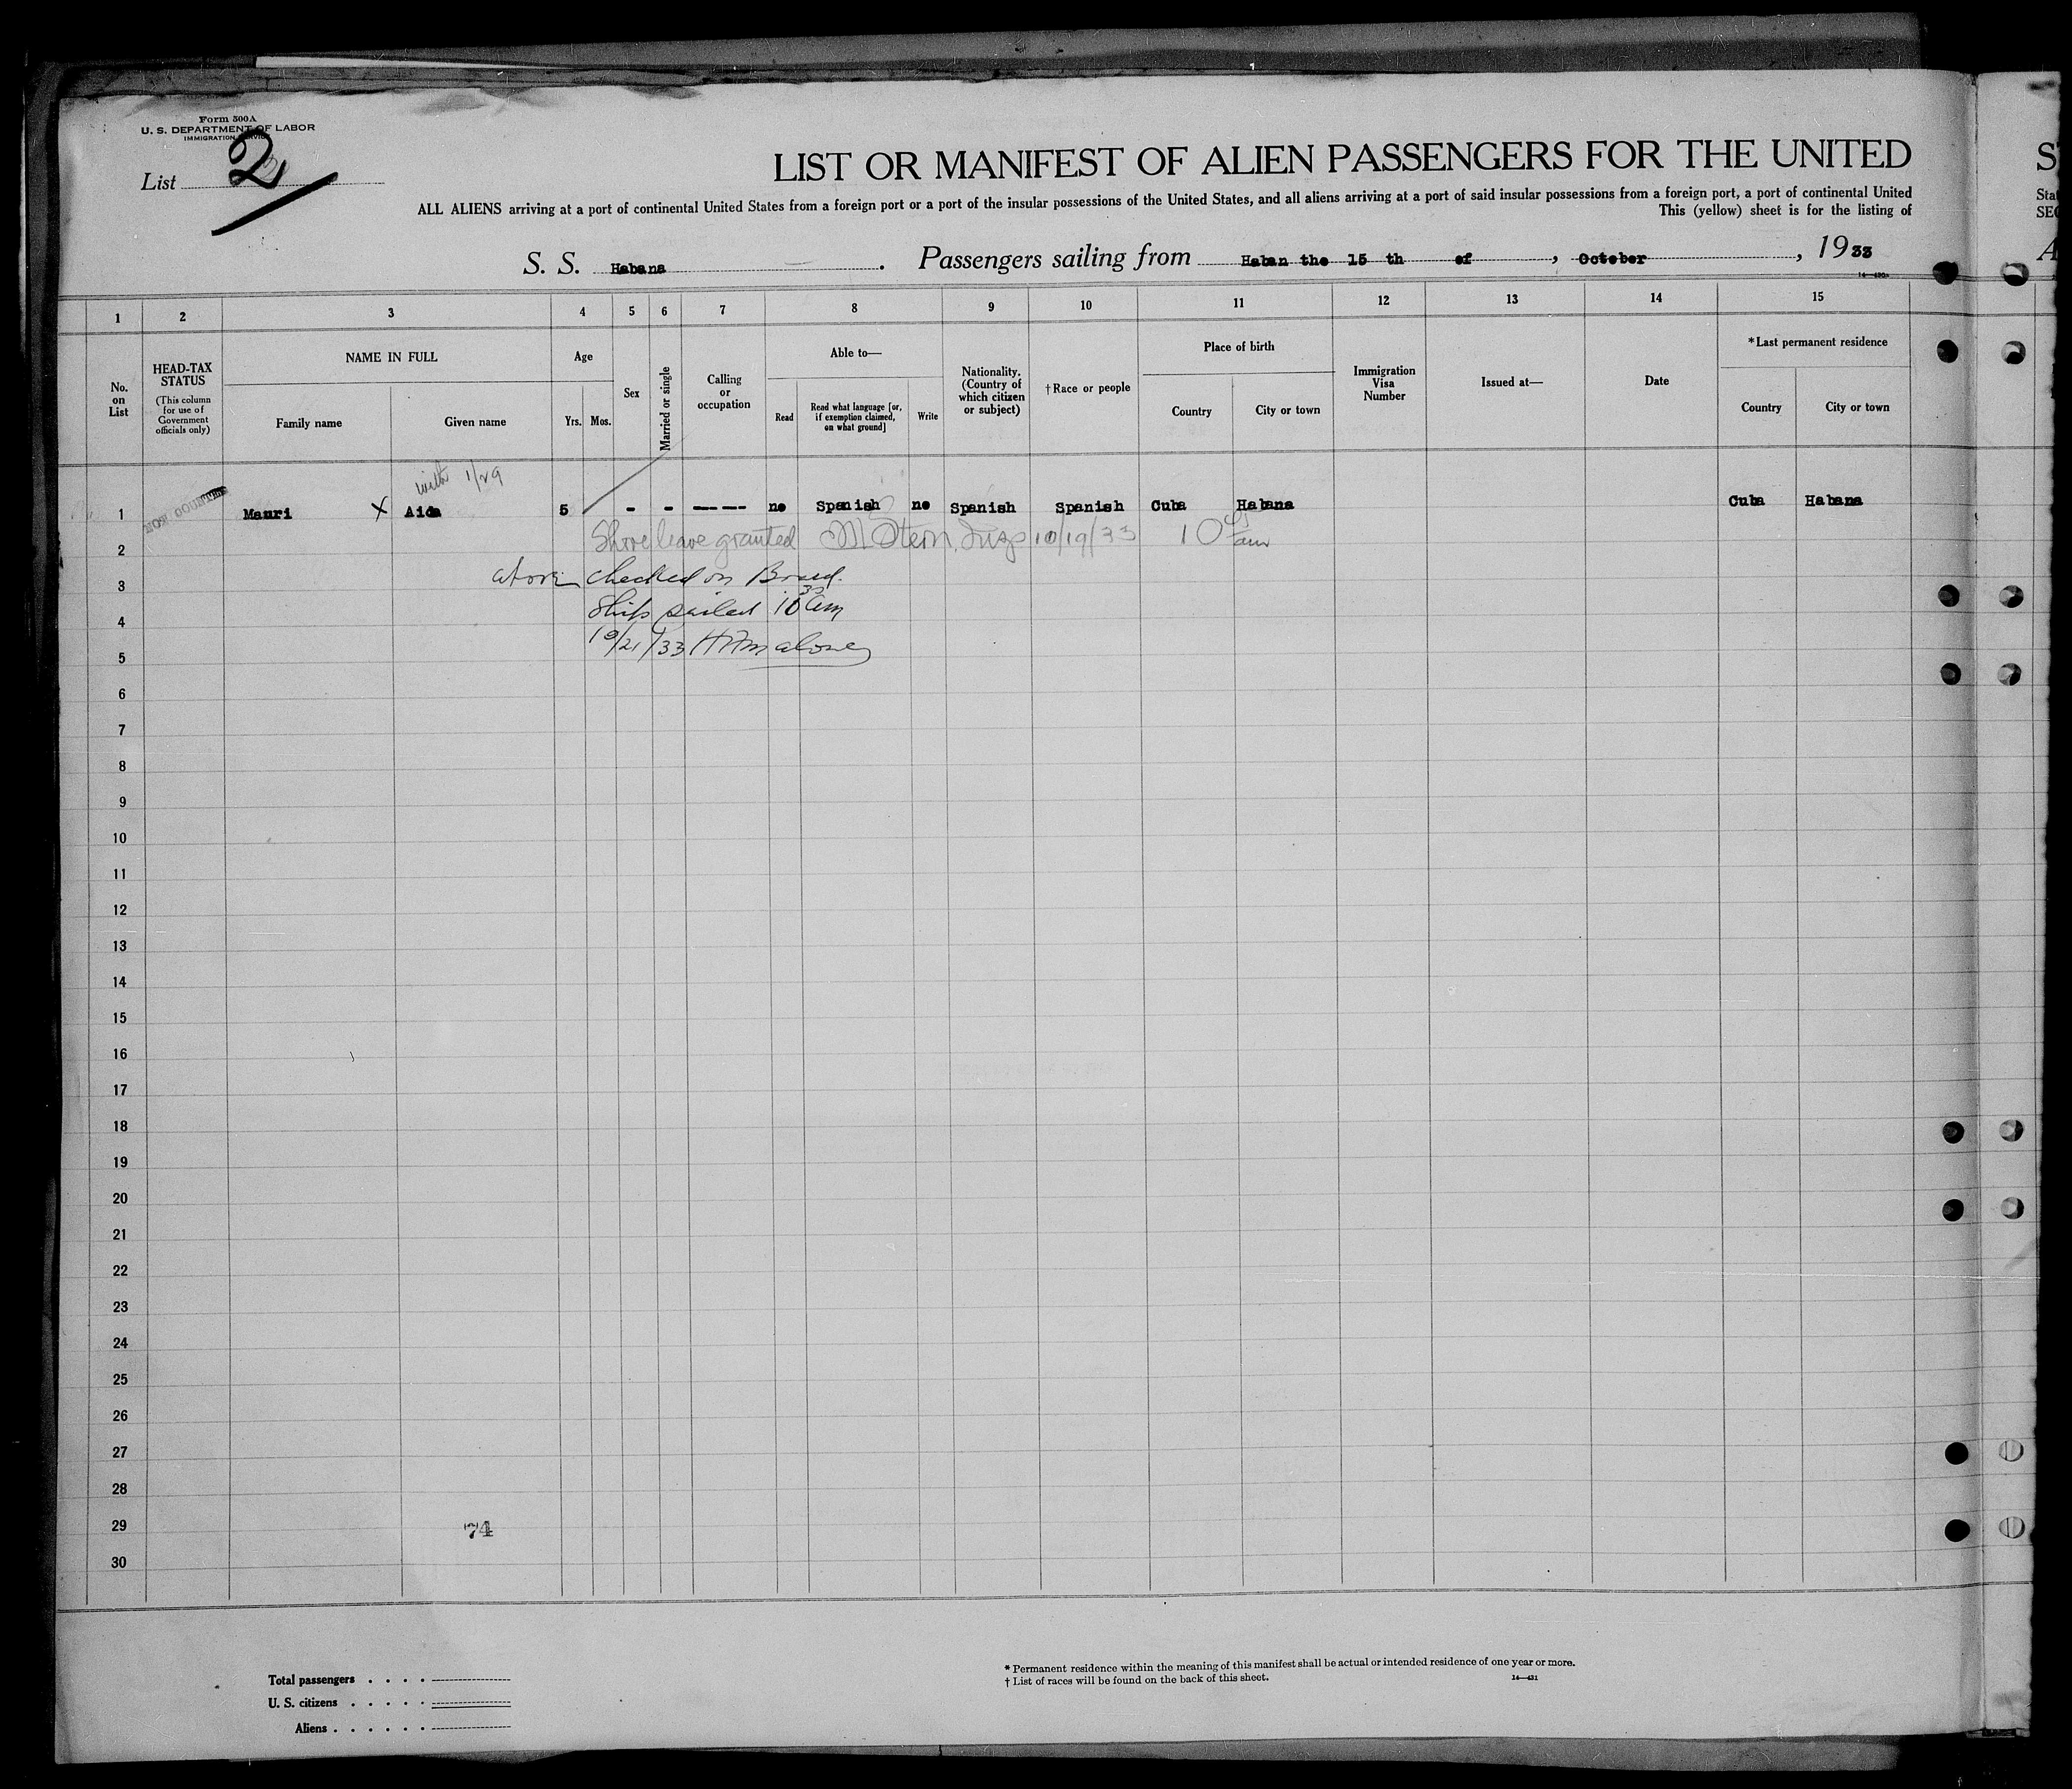 Form 500A
U. S. DEPARTMENT OF LABOR
IMMIGRATION SERVICE
List 2
LIST OR MANIFEST OF ALIEN PASSENGERS FOR THE UNITED
ALL ALIENS arriving at a port of continental United States from a foreign port or a port of the insular possessions of the United States, and all aliens arriving at a port of said insular possessions from a foreign port, a port of continental United
This (yellow) sheet is for the listing of
S. S. Habana . Passengers sailing from Haban the 15 th of , October , 1933
1 2 3 4 5 6 7 8 9 10 11 12 13 14 15
No. on List
HEAD-TAX STATUS (This column for use of Government officials only)
NAME IN FULL
Family name
Given name
Age
Yrs. Mos.
Sex
Married or single
Calling or occupation
Able to—
Read
Read what language [or, if exemption claimed, on what ground]
Write
Nationality. (Country of which citizen or subject)
†Race or people
Place of birth
Country
City or town
Immigration Visa Number
Issued at—
Date
*Last permanent residence
Country
City or town
with 1/29
1 NON COUNTED Mauri X Aida 5 - - ----- no Spanish no Spanish Spanish Cuba Habana Cuba Habana
2 Shore leave granted M Stern, Insp 10/19/33 10 am
3 above checked on Board.
4 Ship sailed 10 30 am
5 10/21/33 Malone
6
7
8
9
10
11
12
13
14
15
16
17
18
19
20
21
22
23
24
25
26
27
28
29 74
30
Total passengers . . . .
U. S. citizens . . . . .
Aliens . . . . . .
* Permanent residence within the meaning of this manifest shall be actual or intended residence of one year or more.
† List of races will be found on the back of this sheet.
14—431